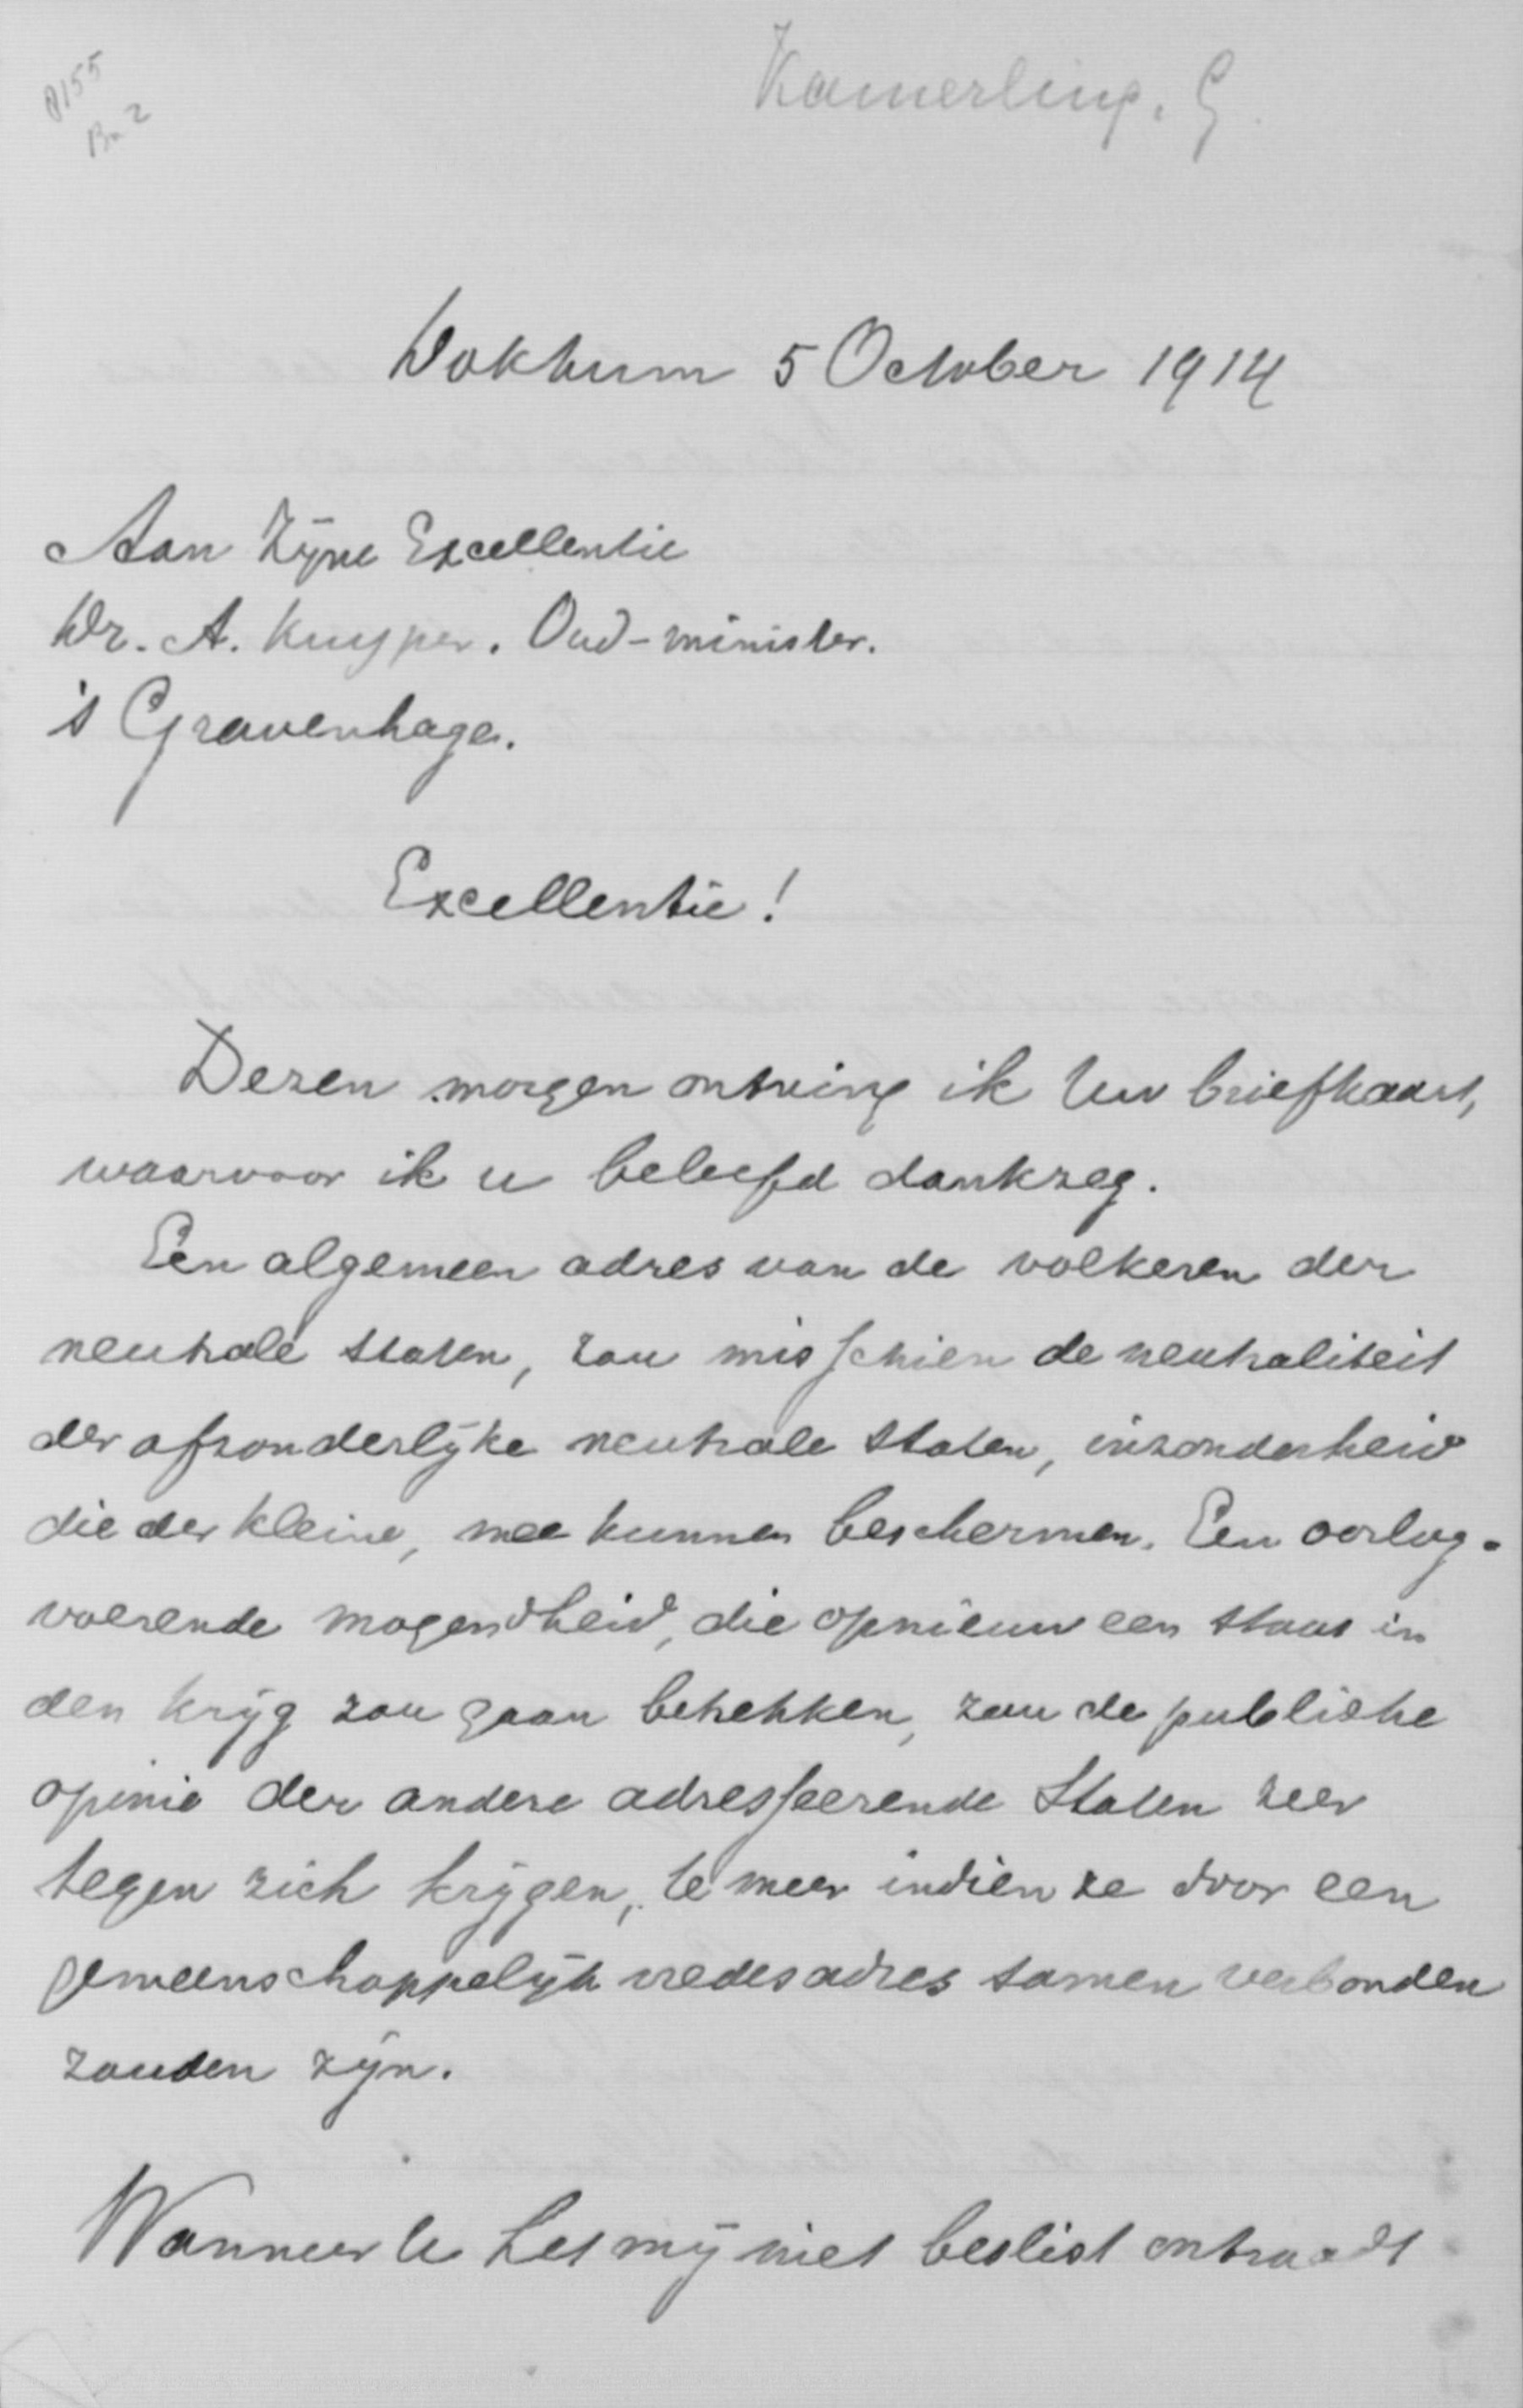 8155
Bn 2
Kamerling. G.
Dokkum 5 October 1914
Aan Zijne Excellentie
Dr. A. Kuyper. Oud-minister.
's Gravenhage.
Excellentie!
Dezen morgen ontving ik Uw briefkaart,
waarvoor ik u beleefd dankzeg.
Een algemeen adres van de volkeren der
neutrale staten, zou misschien de neutraliteit
der afzonderlijke neutrale staten, inzonderheid
die der kleine, mee kunnen beschermen. Een oorlog-
voerende mogendheid, die opnieuw een staat in
den krijg zou gaan betrekken, zou de publieke
opinie der andere adresseerende Staten zeer
tegen zich krijgen, te meer indien ze door een
gemeenschappelijk vredesadres samen verbonden
zouden zijn.
Wanneer U het mij niet beslist ontraadt